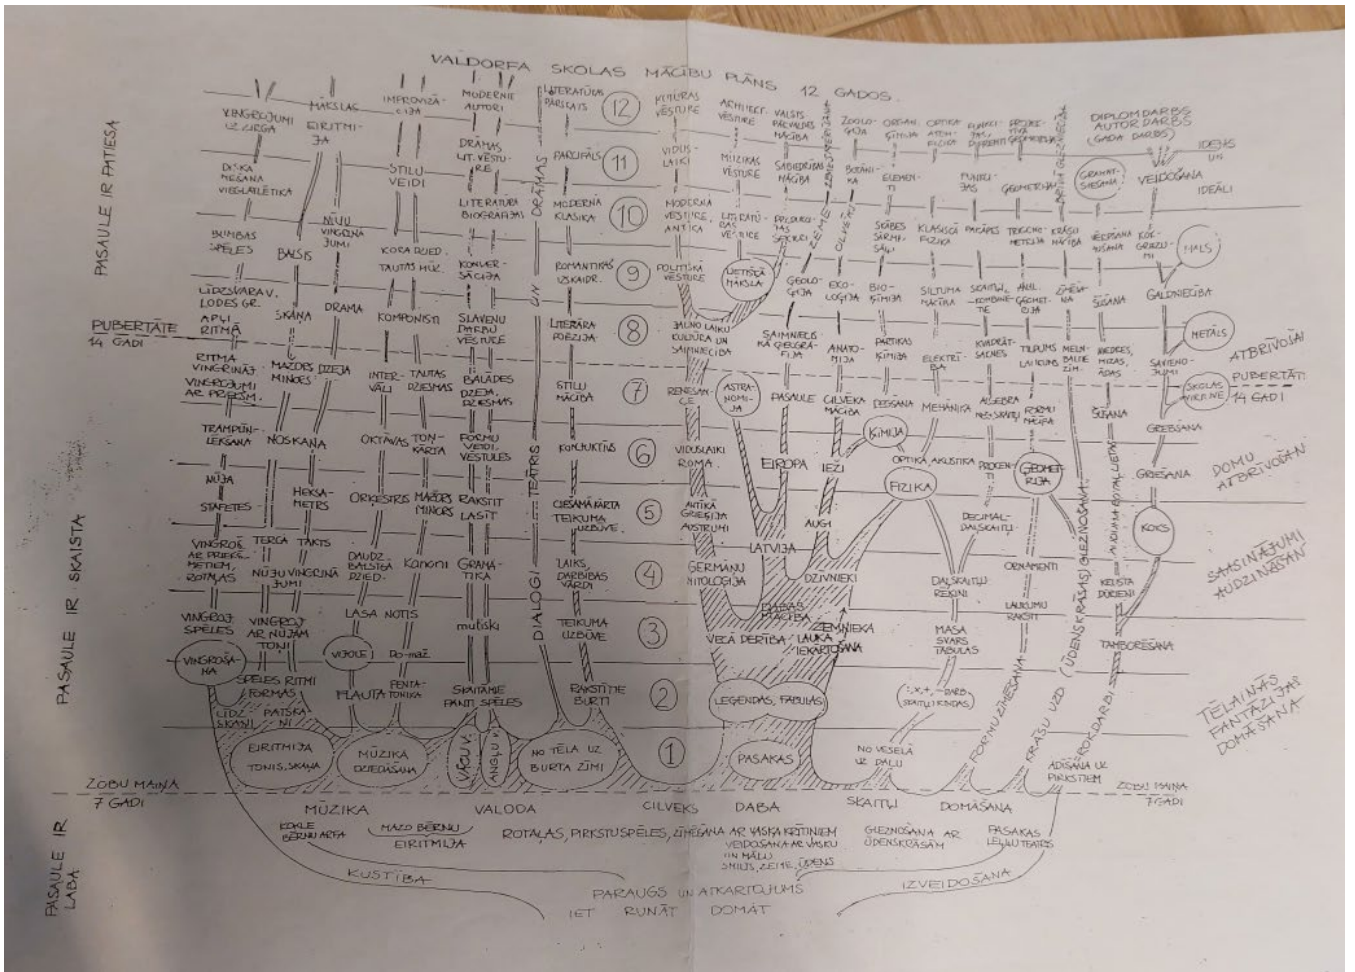 VALDORFA SKOLAS MĀCĪBU PLĀNS 12 GADOS.
PASAULE IR PATIESA
PASAULE IR SKAISTA
PASAULE IR LABA
VINGROJUMI UZ ZIRGA
MĀKSLAS EIRITMIJA
IMPROVIZĀCIJA
MODERNIE AUTORI
LITERATŪRAS
12
KULTŪRAS VĒSTURE
VALSTS PĀRVALDES MĀCĪBA
ZOOLOĢIJA
ORGAN. ĶĪMIJA
OPTIKA ATOMFIZIKA
DIPLOMDARBS
AUTORDARBS
(GADA DARBS)
DISKA MEŠANA
VIEGLATLĒTIKA
STILU VEIDI
DRĀMAS
LIT. VĒSTURE
PARCIFĀLS
11
VIDUSLAIKI
MŪZIKAS VĒSTURE
SABIEDRĪBAS MĀCĪBA
BOTĀNIKA
ELEMENTI
FUNKCIJAS
ĢEOMETRIJA
VEIDOŠANA
IDEJAS UN IDEĀLI
BUMBAS SPĒLES
BALSIS
NŪJU VINGRINAJUMI
KORA DZIED.
LITERATŪRA
BIOGRĀFIJAS
MODERNĀ KLASIKA
10
MODERNĀ VĒSTURE, ANTĪKA
LITERATŪRAS VĒSTURE
SKĀBES SĀRMI SĀĻI
KLASISKĀ FIZIKA
PAKĀPES
TRIGONOMETRIJA
KRĀSU MĀCĪBA
TAUTAS MŪZ.
KONVERSĀCIJA
ROMANTIKAS IZSKAIDR.
9
POLITISKĀ VĒSTURE
LIETIŠĶĀ MĀKSLA
ĢEOLOĢIJA
EKOLOĢIJA
BIOĶĪMIJA
SILTUMA MĀCĪBA
ŠŪŠANA
GALDNIECĪBA
MĀLS
LĪDZSVARA V.
LODES GR.
APĻI
RITMĀ
SKAŅA
DRĀMA
KOMPONISTI
SLAVENU DARBU VĒSTURE
LITERĀRA POĒZIJA
8
JAUNO LAIKU KULTŪRA UN SAIMNIECĪBA
SAIMNIECISKĀ ĢEOGRĀFIJA
ANATOMIJA
PĀRTIKAS ĶĪMIJA
ELEKTRĪBA
KVADRĀTSAKNES
TILPUMS
LAUKUMS
METĀLS
PUBERTĀTE
14 GADI
ATBRĪVOŠA
PUBERTĀT.
14 GADI
RITMA VINGRINĀJ.
VINGROJUMI AR PRIEKŠM.
MAŽORS MINORS
DZEJA
INTERVĀLI
TAUTAS DZIESMAS
BALĀDES
DZEJA,
DZIESMAS
STILU MĀCĪBA
7
RENESANCE
ASTRONOMIJA
PASAULE
CILVĒKA MĀCĪBA
DEGŠANA
MEHĀNIKA
ALGEBRA
FORMU MĀCĪBA
ŠŪŠANA
GREBŠANA
TRAMPLĪNLĒKŠANA
NOSKAŅA
OKTĀVAS
TOŅKĀRTA
FORMU VEIDI,
VĒSTULES
KONJUKTĪVS
6
VIDUSLAIKI
ROMA
EIROPA
IEŽI
ĶĪMIJA
OPTIKA, AKUSTIKA
FIZIKA
ĢEOMETRIJA
GRIEŠANA
DOMU ATBRĪVOŠAN
NŪJA
STAFETES
HEKSAMETRS
ORĶESTRIS
MAŽORS MINORS
RAKSTĪT
LASĪT
CIEŠAMĀ KĀRTA
TEIKUMA UZBŪVE
5
ANTĪKĀ GRIEĶIJA
AUSTRUMI
LATVIJA
AUGI
DECIMĀLDAĻSKAITĻI
KOKS
VINGROŠ. AR PRIEKŠMETIEM, ROTAĻAS
TERCA
TAKTS
NŪJU VINGRINĀJUMI
DAUDZBALSTĪGA DZIED.
KANONI
GRAMATIKA
LAIKS, DARBĪBAS VĀRDI
4
ĢERMĀŅU MITOLOĢIJA
DZĪVNIEKI
DAĻSKAITĻU RĒĶINI
ORNAMENTI
KRUSTA DŪRIENI
SAASINĀJUMI
AUDZINĀŠAN
VINGROJ. SPĒLES
VINGROJ. AR NŪJĀM
TOŅI
LASA NOTIS
mutiski
TEIKUMA UZBŪVE
3
VECĀ DERĪBA
DABAS MĀCĪBA
ZEMNIEKA
LAUKA IEKĀRTOŠANA
MASA
SVARS
TABULAS
LAUKUMU RAKSTI
TAMBORĒŠANA
VINGROŠANA
SPĒLES RITMI
FORMAS
VIJOLE
Do-maž.
FLAUTA
PENTATONIKA
SKAITĀMIE PANTI
SPĒLES
RAKSTĪTIE BURTI
2
LEĢENDAS, FABULAS
TĒLAINĀS FANTĀZIJAS DOMĀŠANA
EIRITMIJA
TONIS, SKAŅA
MŪZIKA
DZIEDĀŠANA
VĀCU V.
ANGĻU V.
NO TĒLA UZ BURTA ZĪMI
1
PASAKAS
NO VESELĀ UZ DAĻU
FORMU ZĪMĒŠANA
KRĀSU UZD. (ŪDENSKRĀSAS) GLEZNOŠANA
ROKDARBI
ADĪŠANA UZ PIRKSTIEM
DIALOGI TEĀTRIS UN DRĀMAS
ZOBU MAIŅA
7 GADI
ZOBU MAIŅA
7 GADI
MŪZIKA
VALODA
CILVĒKS
DABA
SKAITĻI
DOMĀŠANA
KOKLE
BĒRNU ARFA
MAZO BĒRNU
EIRITMIJA
ROTAĻAS, PIRKSTUSPĒLES, ZĪMĒŠANA AR VASKA KRĪTIŅIEM
VEIDOŠANA AR VASKU
UN MĀLU
SMILTS, ZEME, ŪDENS
GLEZNOŠANA AR ŪDENSKRĀSĀM
PASAKAS
LEĻĻU TEĀTRIS
KUSTĪBA
IZVEIDOŠANA
PARAUGS UN ATKĀRTOJUMS
IET RUNĀT DOMĀT